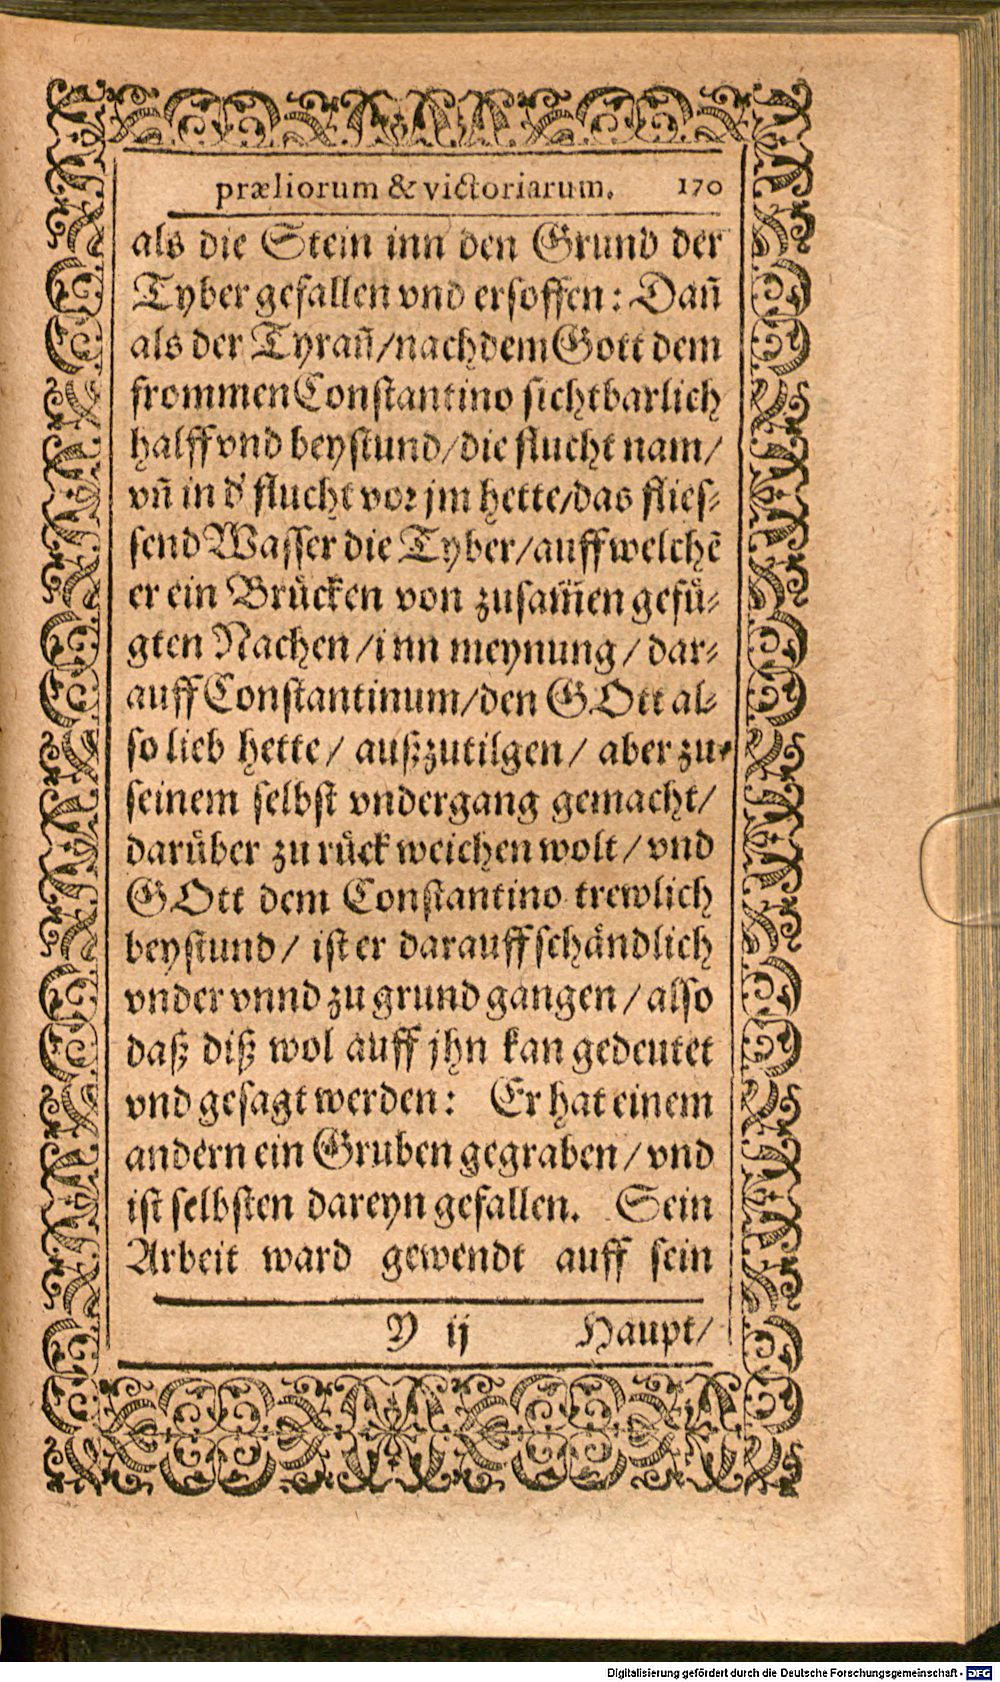 præliorum & victoriarum. 170
als die Stein inn den Grund der
Tyber gefallen vnd ersoffen: Dañ
als der Tyrañ/nachdem Gott dem
frommen Constantino sichtbarlich
halff vnd beystund/die flucht nam/
vñ in d' flucht vor jm hette/das flies-
send Wasser die Tyber/auff welchẽ
er ein Brůcken von zusam̃en gefů-
gten Nachen/inn meynung/dar-
auff Constantinum/den GOtt al-
so lieb hette/ außzutilgen/ aber zu
seinem selbst vndergang gemacht/
darůber zu růck weichen wolt/vnd
GOtt dem Constantino trewlich
beystund/ ist er darauff schåndlich
vnder vnnd zu grund gangen/also
daß diß wol auff jhn kan gedeutet
vnd gesagt werden: Er hat einem
andern ein Gruben gegraben/vnd
ist selbsten dareyn gefallen. Sein
Arbeit ward gewendt auff sein
Y ij Haupt/
Digitalisierung gefördert durch die Deutsche Forschungsgemeinschaft - DFG